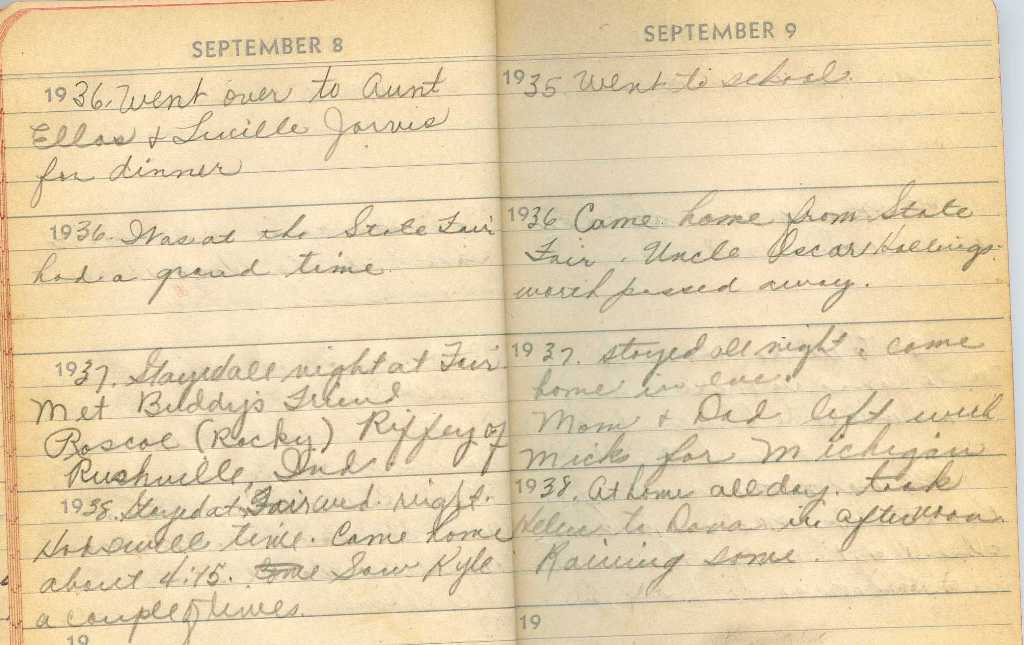 SEPTEMBER 8
1936. Went over to Aunt
Ellas & Lucille Jarvis
for dinner
1936. Was at the State Fair
had a grand time.
1937. Stayed all night at Fair.
Met Buddy's Friend
Roscoe (Rocky) Riffey of
Rushville, Ind.
1938. Stayed at Fair and night.
Had swell time. Came home
about 4:15. Saw Kyle
a couple of times.
19
SEPTEMBER 9
1935 Went to school.
1936 Came home from State
Fair. Uncle Oscar Hollings-
worth passed away.
1937. stayed all night. came
home in eve.
Mom & Dad left with
Mick for Michigan
1938. At home all day. took
Helen to Dana in afternoon.
Raining some.
19